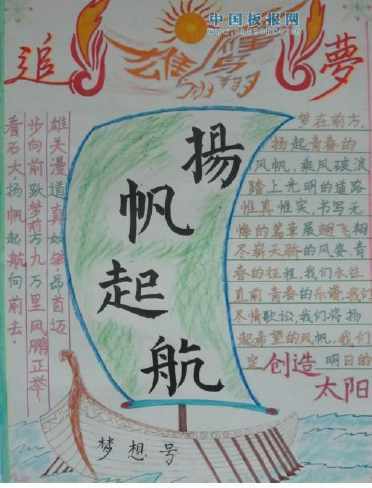 中国板报网
追
夢
揚帆起航
雄关漫道真如铁昂首迈
步向前致梦前方九万里风鹏正举
看石大扬帆起航向前去
梦在前方，
扬起青春的
风帆，乘风破浪
踏上光明的道路
惟真惟实，书写无
悔的篇章展翅飞翔
尽崭天骄的风姿青
春的征程，我们永往
直前青春的乐谱，我们
尽情歌讼，我们将扬
起希望的风帆，我们
定创造明日的
太阳
梦想号